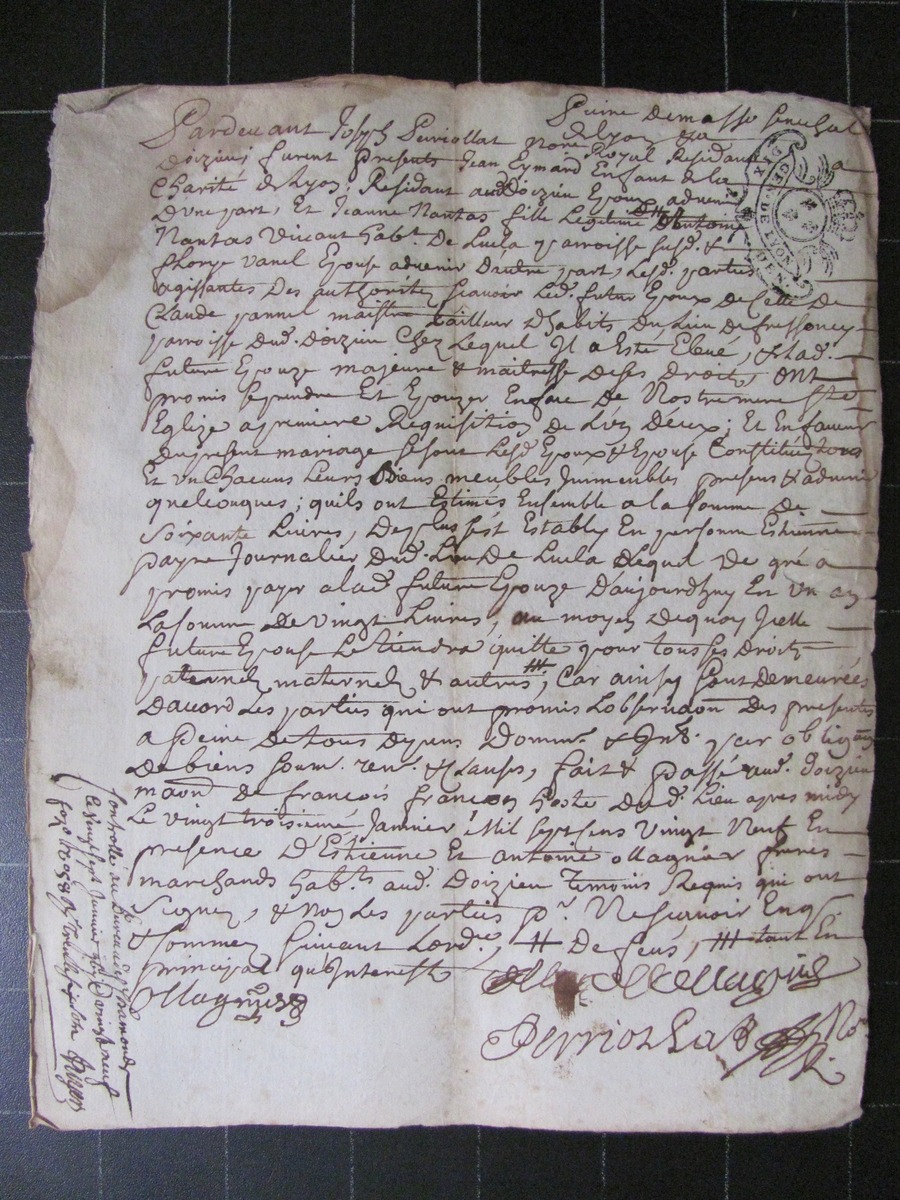 Pardevant Joseph Perriollat Nore Royal Residant a
Doizieu furent presents Jean Eymard Enfant de la
Charité de Lyon; Residant aud Doizieu Epoux advenir
D'une part, Et Jeanne Nantas fille Legitime
Nantas Vivant habt. De Lucla parroisse susd. &
Epouse advenir Dautre part, Lesd. parties
agissantes Des authorités scavoir Led. futur Epoux de Celle De
Claude maistre Tailleur D'habits Du Lieu de fressoney
parroisse Dud. Doizieu Chez Lequel Il a Esté Elevé, & Lad.
future Epouze majeure & maitresse De ses Droits, ont
promis se prendre Et Epouzer En face De Nostre mere ste
Eglize a premiere Requisition de L'un Deux; Et En faveur
Du present mariage se sont Lesd Epoux & Epouse Constitués tous
Et un Chacuns Leurs Biens meubles Immeubles presens & advenir
quelconques; quils ont Estimés Ensemble a la somme De
Soixante Livres, De plus s'est Estably En personne Estienne
payre Journalier Dud. Lieu De Lucla Lequel De gré a
promis payer a lad. future Epouze D'aujourdhuy En un an
La somme De vingt Livres, au moyen Dequoy Icelle
future Epouse Le tiendra quitte pour tous ses Droits
paternels maternels & autres; Car ainsy sont demeurées
Dacord Les parties qui ont promis Lobservaon Des presentes
a peine De tous Depens Domm. & Ints. par obligaon
De biens soum. ren. & Clauses, fait & passé aud. Doizieu
maon De françois françon hoste Dud. Lieu apres midy
Le vingt troisieme Janvier Mil sept sens Vingt Neuf En
presence D'Estienne Et antoine ollagnier freres
marchands habts aud. Doizieu Temoins Requis qui ont
Signés, & Non Les parties pr. Ne scavoir Enq.
& sommés suivant Lordce, # De feus, ### tant En
principal qu'Interests
Ollagnier
Perriolat Nore R.
Controllé au Bureau de St Chamond
Le vingt sept Janvier
GEN DE LYON